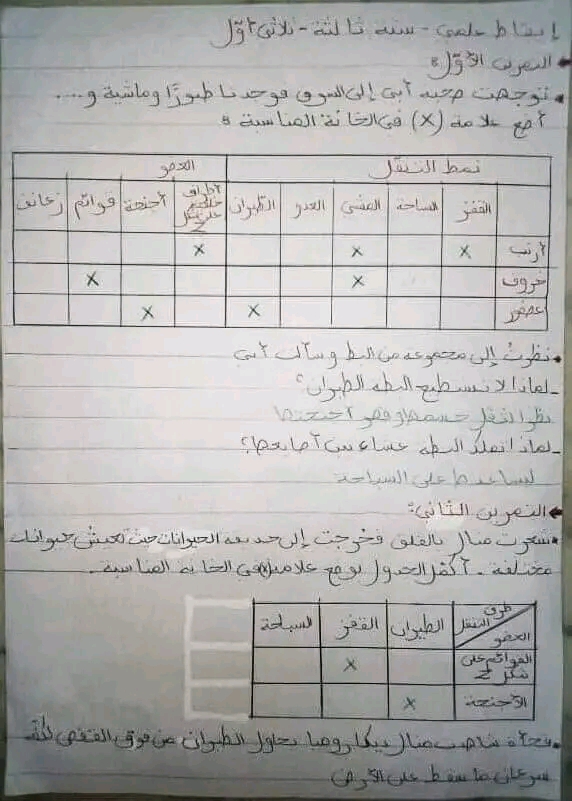 إيقاظ علمي - سنة ثالثة - ثلاثي أوّل
التمرين الأوّل:
توجهت صحبة أبي إلى السوق فوجدنا طيورًا وماشية و....
أضع علامة (X) في الخانة المناسبة:
نمط التنقل العضو
القفز السباحة المشي العدو الطيران أطراف خلفية على شكل Z أجنحة قوائم زعانف
أرنب X X X
خروف X X
عصفور X X
نظرت إلى مجموعة من البط وسألت أبي
- لماذا لا تستطيع البطة الطيران؟
نظرا لثقل جسمها وقصر أجنحتها
- لماذا تملك البطة غشاء بين أصابعها؟
ليساعدها على السباحة
التمرين الثاني:
شعرت منال بالقلق فخرجت إلى حديقة الحيوانات حيث تعيش حيوانات
مختلفة. أكمل الجدول بوضع علامة في الخانة المناسبة.
طرق التنقل العضو الطيران القفز السباحة
القوائم على شكل Z X
الأجنحة X
فجأة شاهدت منال ديكا روميا يحاول الطيران من فوق القفص لكنّه
سرعان ما سقط على الأرض